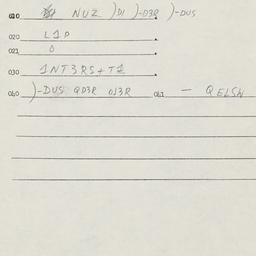 010 NUZ )DI )-D3R )-DUS
020 L1P
021 O
030 1NT3RS+T1
060 )-DUS QD3R OJ3R 061 — QELSN